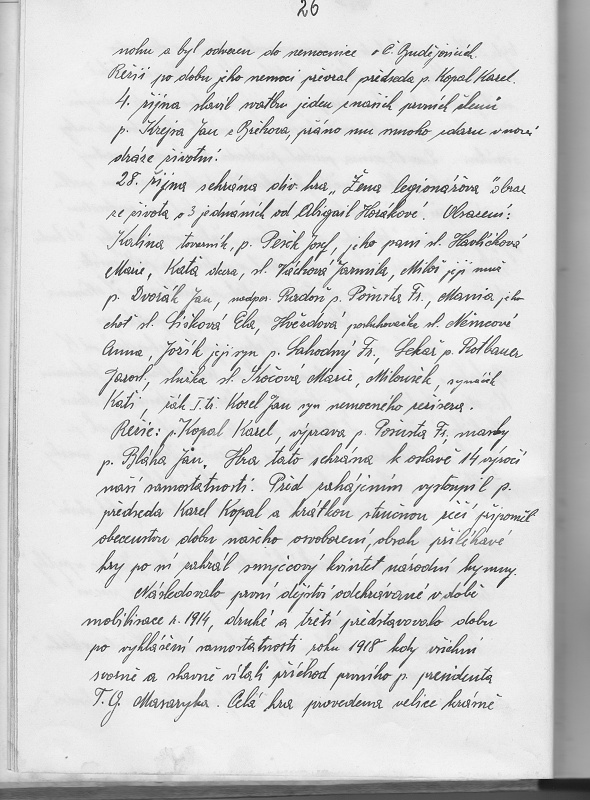 26
nohu a byl odvezen do nemocnice v Č. Budějovicích.
Režii po dobu jeho nemoci převzal předseda p. Kopal Karel.
4. října slavil svatbu jeden z našich prvních členů
p. Krejna Jan z Břehova, přáno mu mnoho zdaru v nové
dráze životní.
28. října sehrána div. hra „Žena legionářova" obraz
ze života o 3 jednáních od Abigail Horákové. Obsazení:
Kalina továrník, p. Pešek Josef, jeho paní sl. Havlíčková
Marie, Kača dcera, sl. Váchová Jarmila, Miloš její muž
p. Dvořák Jan, nadpor. Radoň p. Pořusta Fr., Mania jeho
choť sl. Lišková Ela, Hvězdová posluhovačka sl. Němcová
Anna, Jožík její syn p. Lahodný Fr., Lékař p. Rotbauer
Jarosl., služka sl. Kročová Marie, Miloušek, synáček
Kači, žák I. tř. Kozel Jan syn nemocného režiséra.
Režie: p. Kopal Karel, výprava p. Pořusta Fr., masky
p. Bláha Jan. Hra tato sehrána k oslavě 14 výročí
naší samostatnosti. Před zahájením vystoupil p.
předseda Karel Kopal a krátkou stručnou řečí připoměl
obecenstvu dobu našeho osvobození, obsah přiléhavé
hry po ní zahrál smyčcový kvintet národní hymny.
Následovalo první dějství odehrávané v době
mobilisace r. 1914, druhé a třetí představovalo dobu
po vyhlášení samostatnosti roku 1918 kdy všichni
svorně a slavně vítali příchod prvního p. presidenta
T. G. Masaryka. Celá hra provedena velice krásně